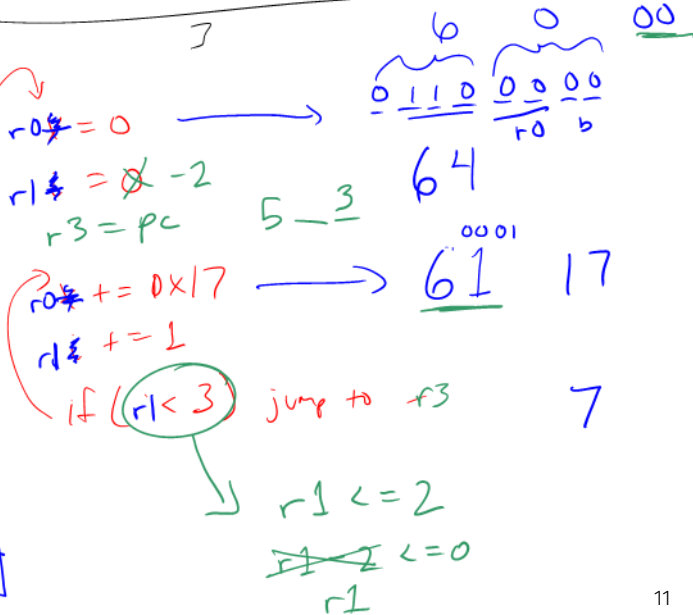 3
6 0 00
r0 = 0 → 0 1 1 0 0 0 0 0
r0 b
r1 = 0 -2 64
r3 = pc 5 _ 3
0001
r0 += 0x17 → 61 17
r1 += 1
if (r1 < 3) jump to r3 7
r1 <= 2
r1 - 2 <= 0
r1
11